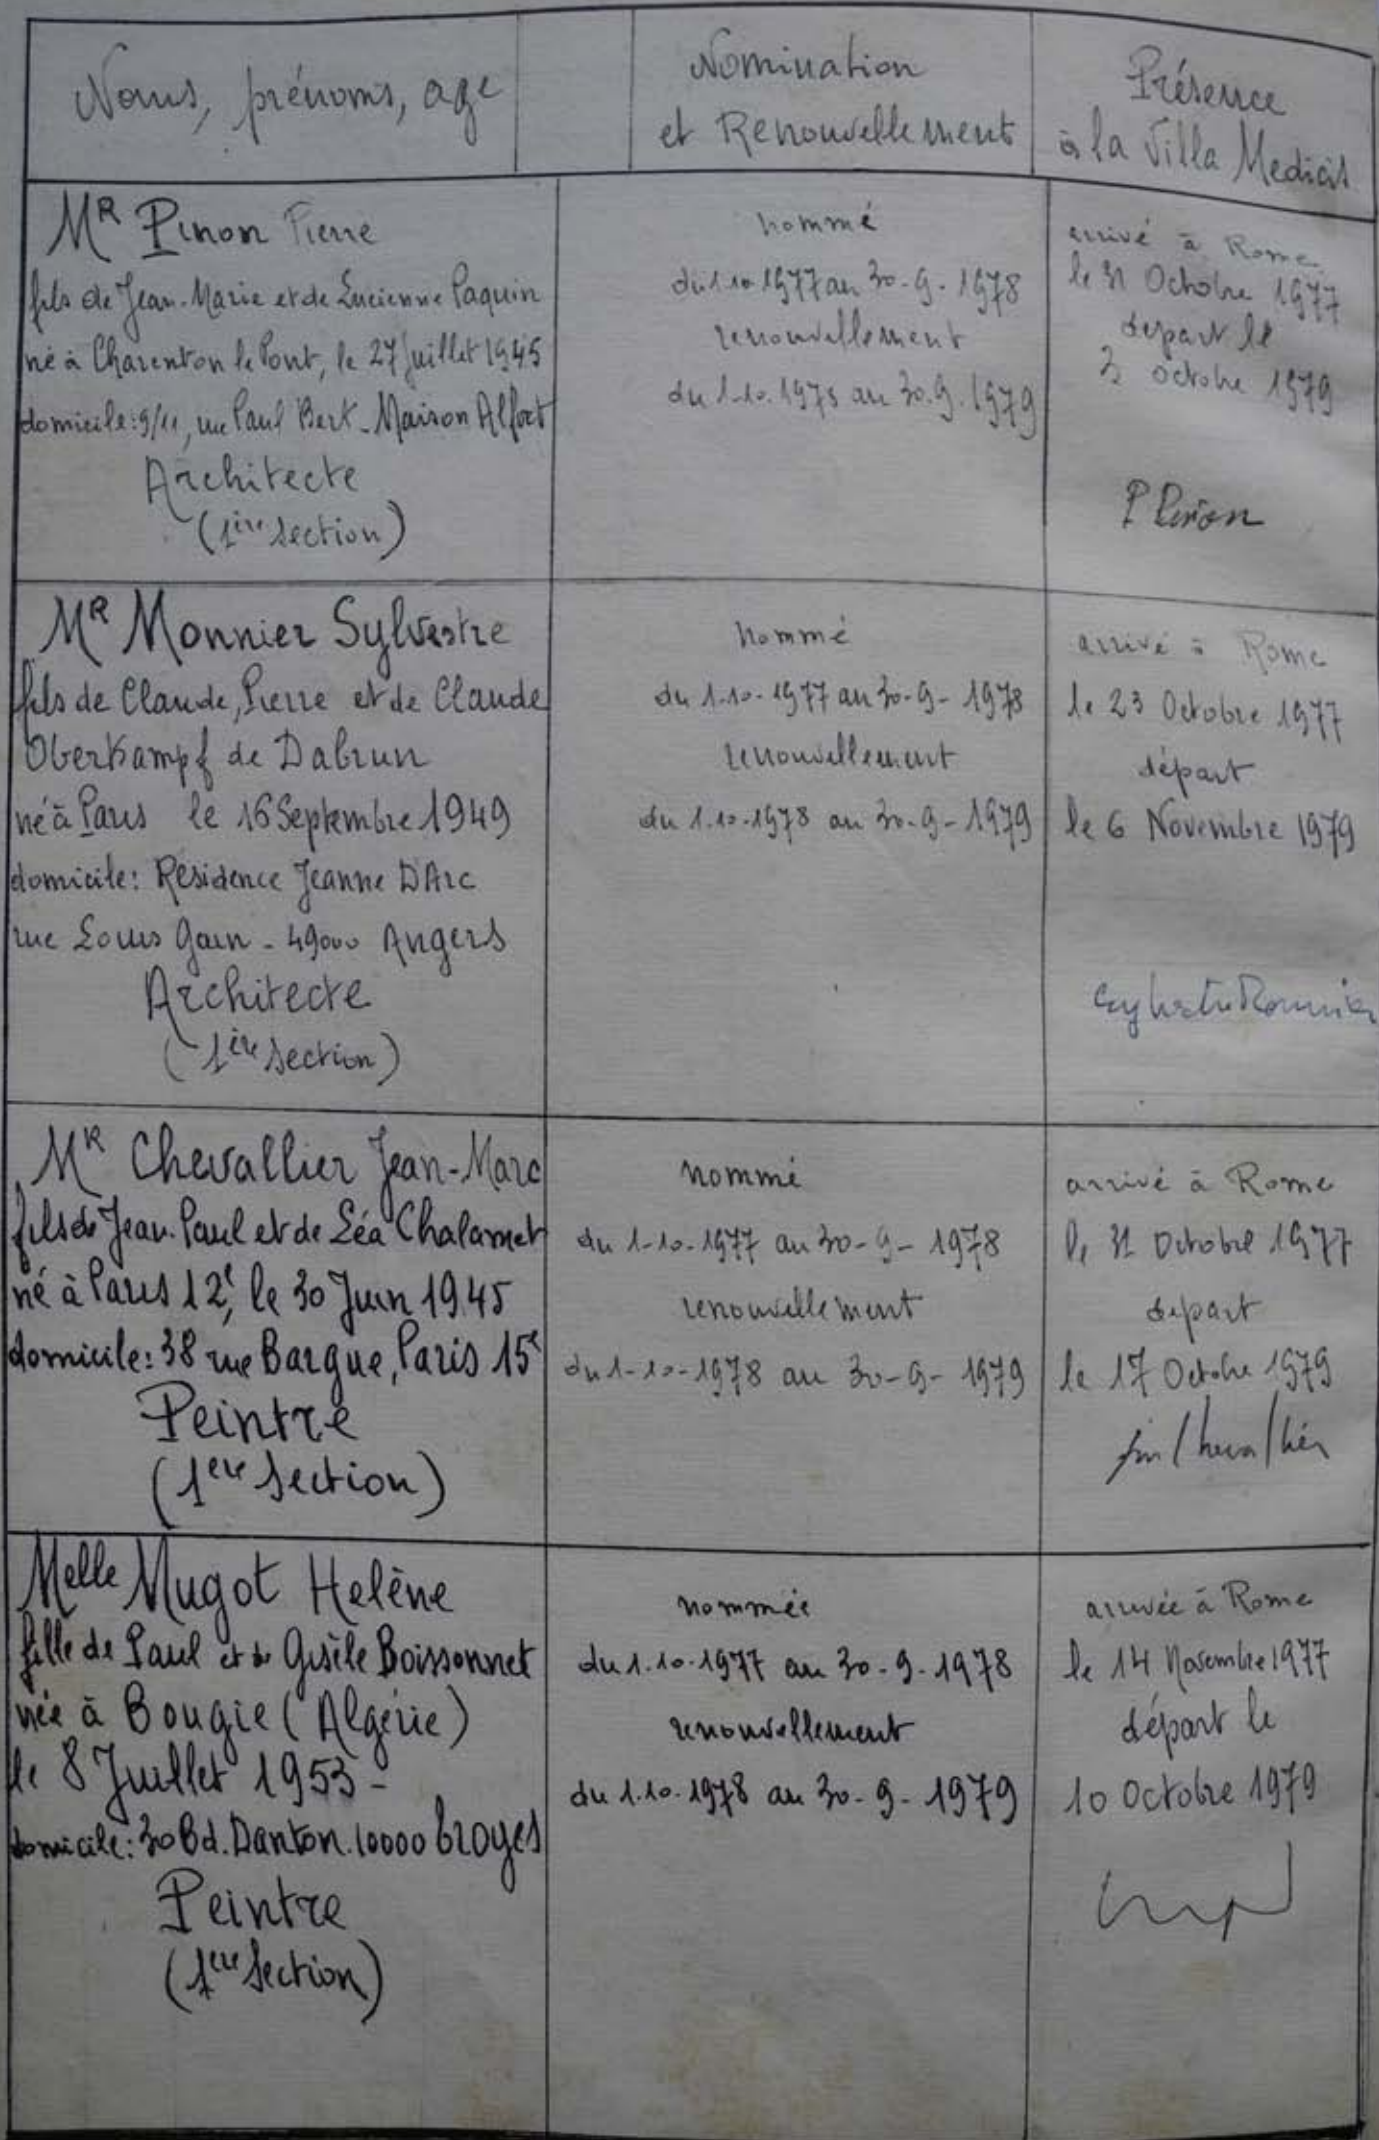 Noms, prénoms, age
Nomination
et Renouvellement
Présence
à la Villa Medicis
MR Pinon Pierre
fils de Jean-Marie et de Lucienne Paquin
né à Charenton le Pont, le 27 juillet 1945
domicile: 9/11, rue Paul Bert - Maison Alfort
Architecte
(1ère section)
nommé
du 1.10.1977 au 30-9-1978
renouvellement
du 1-10.1978 au 30.9.1979
arrivé à Rome
le 31 Octobre 1977
départ le
3 octobre 1979
P Pinon
MR Monnier Sylvestre
fils de Claude, Pierre et de Claude
Oberkampf de Dabrun
né à Paris le 16 Septembre 1949
domicile: Résidence Jeanne D'Arc
rue Louis Gain - 49000 Angers
Architecte
(1ère section)
nommé
du 1.10-1977 au 30-9-1978
renouvellement
du 1.10-1978 au 30-9-1979
arrivé à Rome
le 23 Octobre 1977
départ
le 6 Novembre 1979
Sylvestre Monnier
MR Chevallier Jean-Marc
fils de Jean-Paul et de Léa Chalamet
né à Paris 12e, le 30 Juin 1945
domicile: 38 rue Bargue, Paris 15e
Peintre
(1ere Section)
nommé
du 1-10-1977 au 30-9-1978
renouvellement
du 1-10-1978 au 30-9-1979
arrivé à Rome
le 31 Octobre 1977
départ
le 17 Octobre 1979
Melle Mugot Helène
fille de Paul et de Gisèle Boissonnet
née à Bougie (Algérie)
le 8 Juillet 1953-
domicile: 30 Bd. Danton. 10000 Troyes
Peintre
(1ere Section)
nommée
du 1.10.1977 au 30-9-1978
renouvellement
du 1.10.1978 au 30-9-1979
arrivée à Rome
le 14 Novembre 1977
départ le
10 Octobre 1979